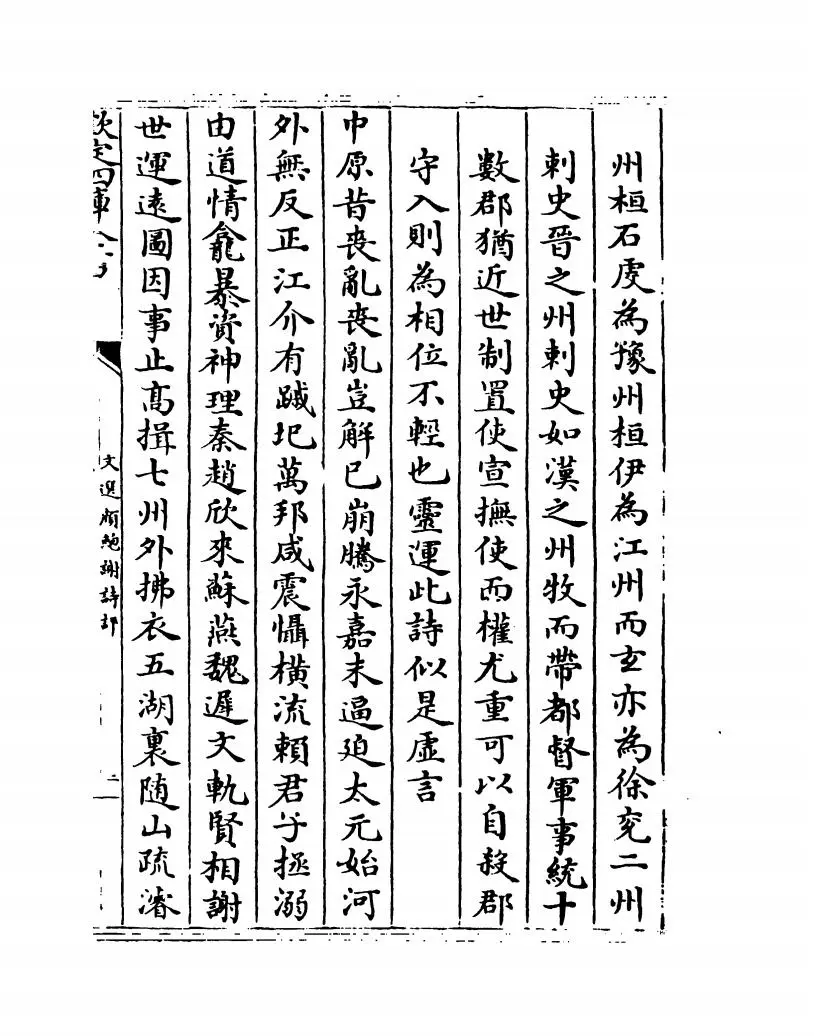 州桓石䖍為豫州桓伊為江州而𤣥亦為徐兖二州
刺史晉之州刺史如漢之州牧而帶都督軍事統十
數郡猶近世制置使宣撫使而權尤重可以自殺郡
守入則為相位不輕也靈運此詩似是虛言
中原昔喪亂喪亂豈解已崩騰永嘉末逼迫太元始河
外無反正江介有蹙圮萬邦咸震懾橫流賴君子拯溺
由道情龕暴資神理秦趙欣來蘇燕魏遲文軌賢相謝
世運逺圖因事止髙揖七州外拂衣五湖裏随山疏濬
欽定四庫全書
文選顔鮑謝詩評
二